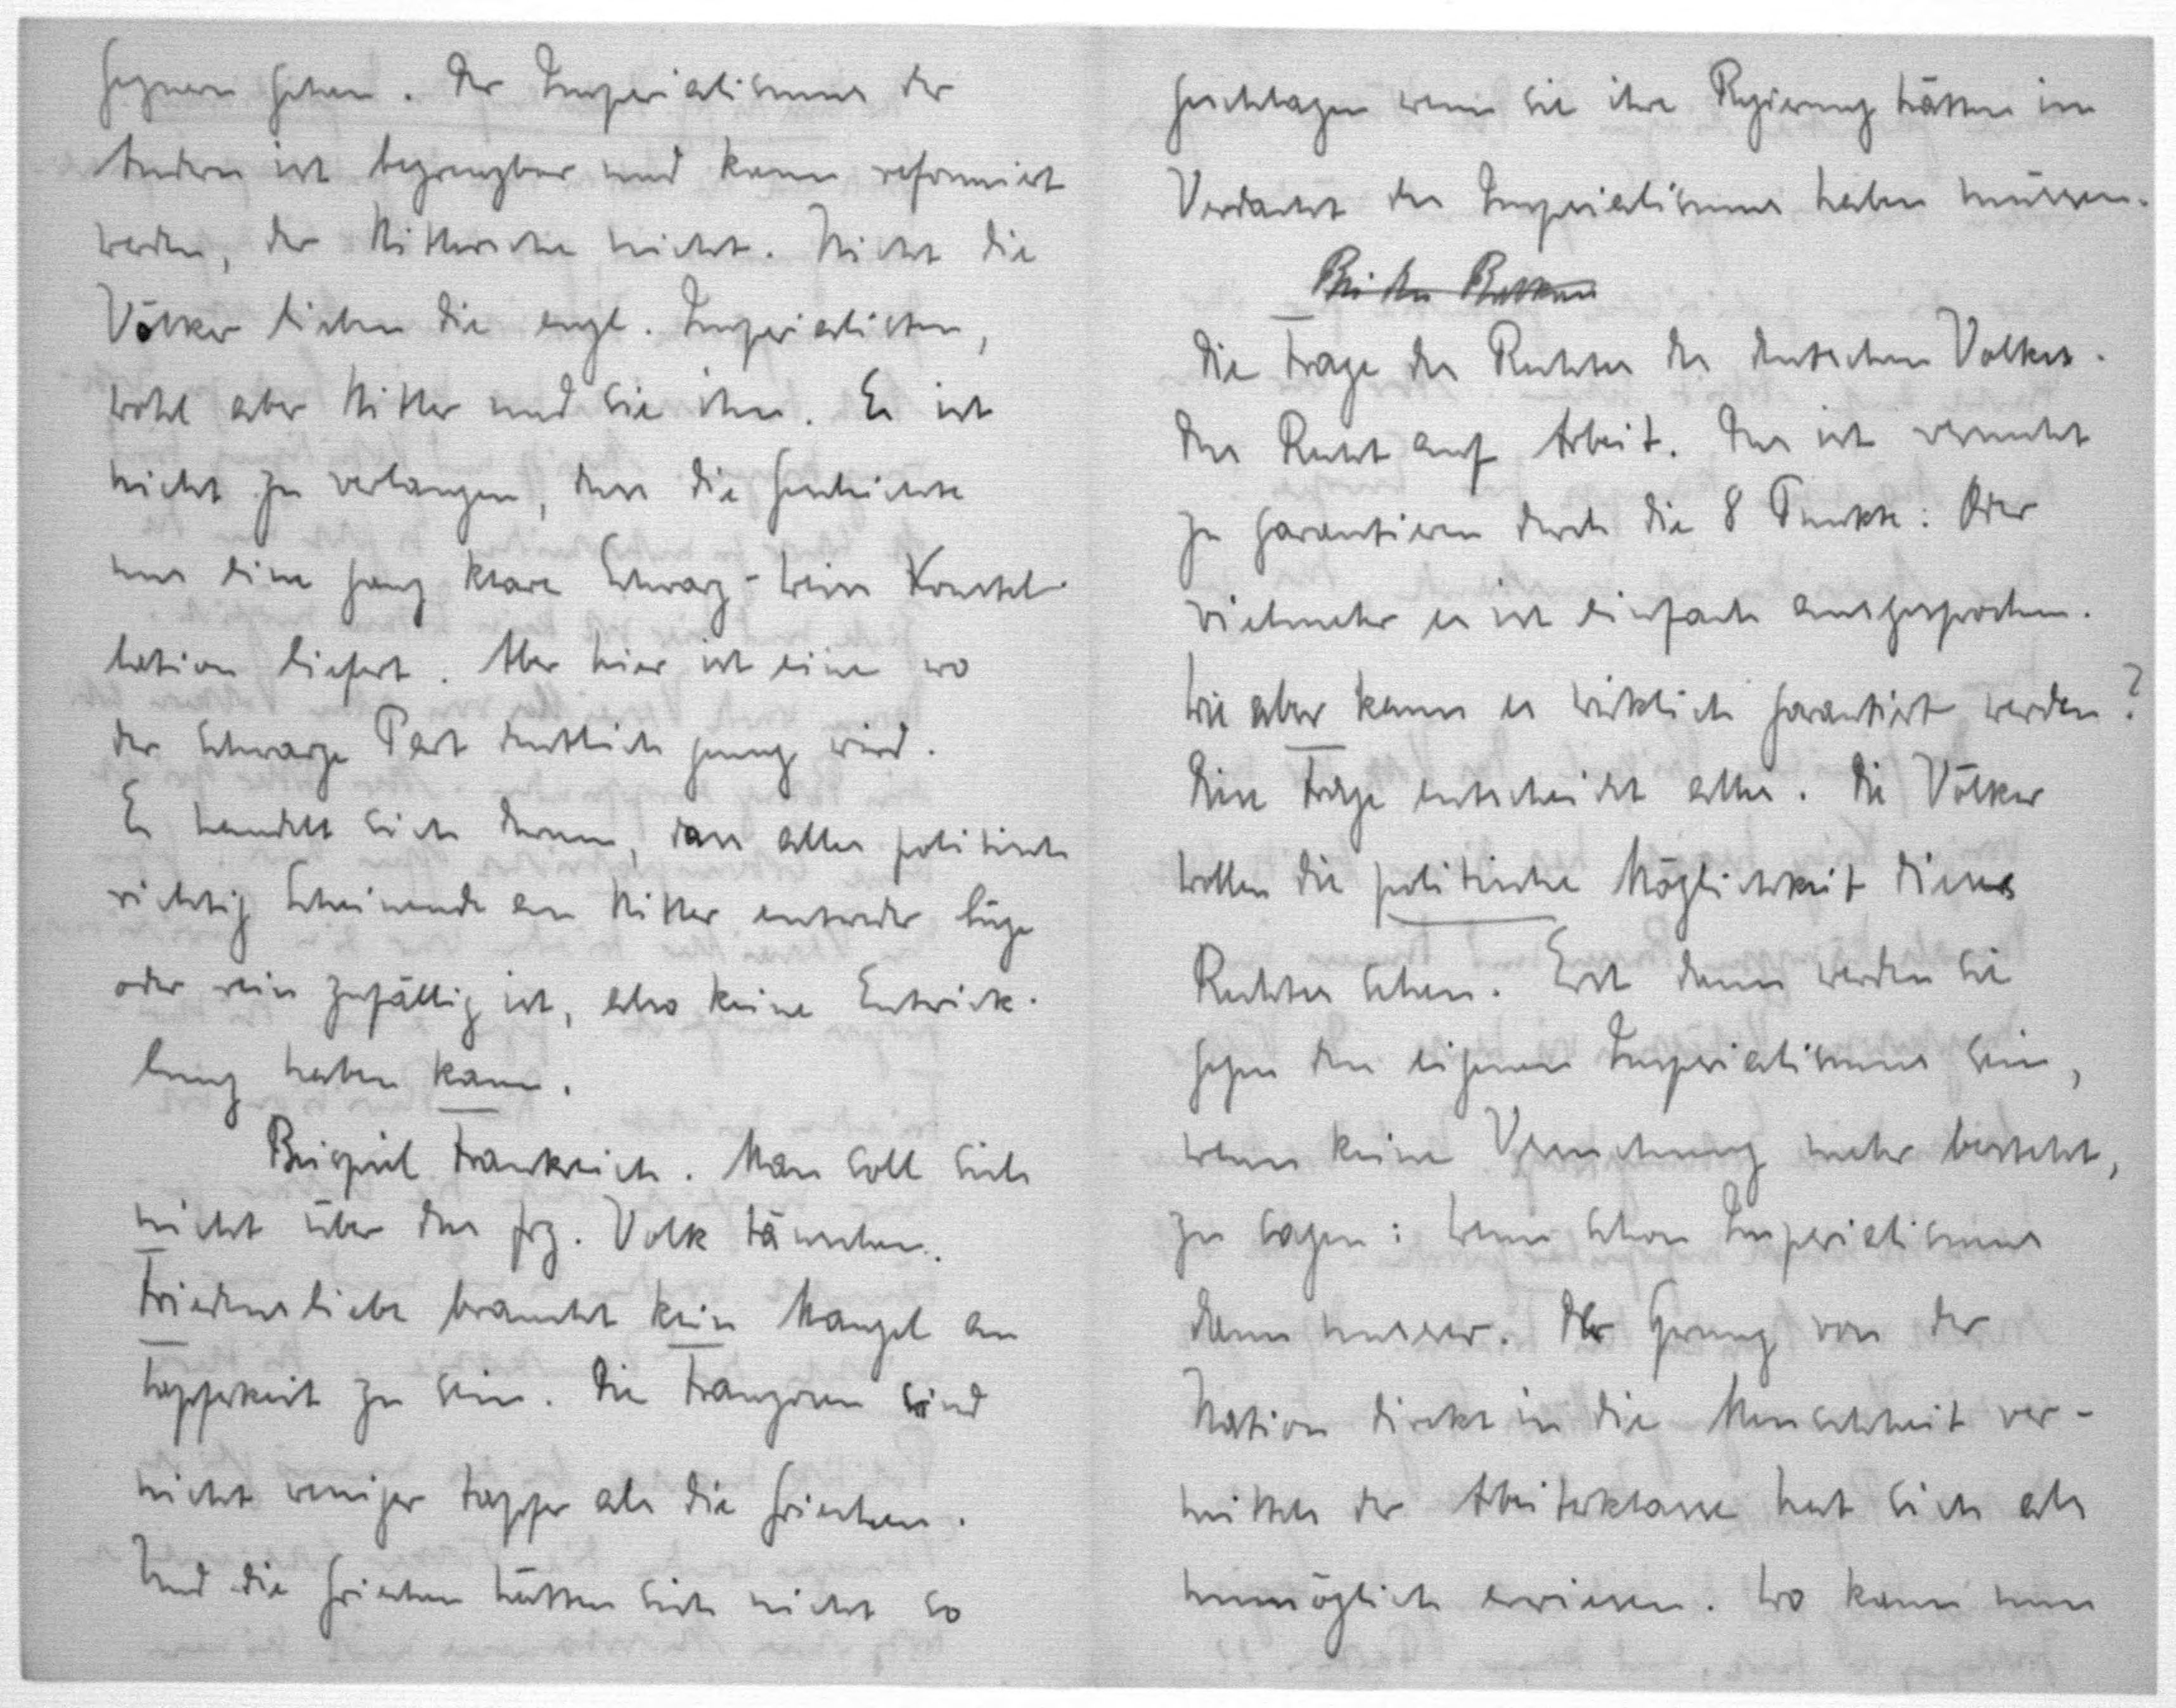 Gegnern gehen. Der Imperialismus der
Andern ist begrenzbar und kann reformiert
werden, der Hitlersche nicht. Nicht die
Völker lieben die engl. Imperialisten,
wohl aber Hitler und sie ihn. Es ist
nicht zu verlangen, dass die Geschichte
nur eine ganz klare Schwarz-Weiss Konstel-
lation liefert. Aber hier ist eine wo
der schwarze Part deutlich genug wird.
Es handelt sich darum, dass alles politisch
richtig Scheinende an Hitler entweder Lüge
oder rein zufällig ist, also keine Entwick-
lung haben kann.
Beispiel Frankreich. Man soll sich
nicht über das frz. Volk täuschen.
Friedensliebe braucht kein Mangel an
Tapferkeit zu sein. Die Franzosen sind
nicht weniger tapfer als die Griechen.
Und die Griechen hätten sich nicht so
geschlagen wenn sie ihre Regierung hätten im
Verdacht des Imperialismus haben müssen.
Bei den
Die Frage des Rechtes des deutschen Volkes.
Das Recht auf Arbeit. Das ist versucht
zu garantieren durch die 8 Punkte: Oder
vielmehr es ist einfach ausgesprochen.
Wie aber kann es wirklich garantiert werden?
Diese Frage entscheidet alles. Die Völker
wollen die politische Möglichkeit dieses
Rechtes sehen. Erst dann werden sie
gegen den eigenen Imperialismus sein,
wenn keine Versuchung mehr besteht,
zu sagen: Wenn schon Imperialismus
dann unserer. Der Sprung von der
Nation direkt in die Menschheit ver-
mittels der Arbeiterklasse hat sich als
unmöglich erwiesen. Wo kann nun